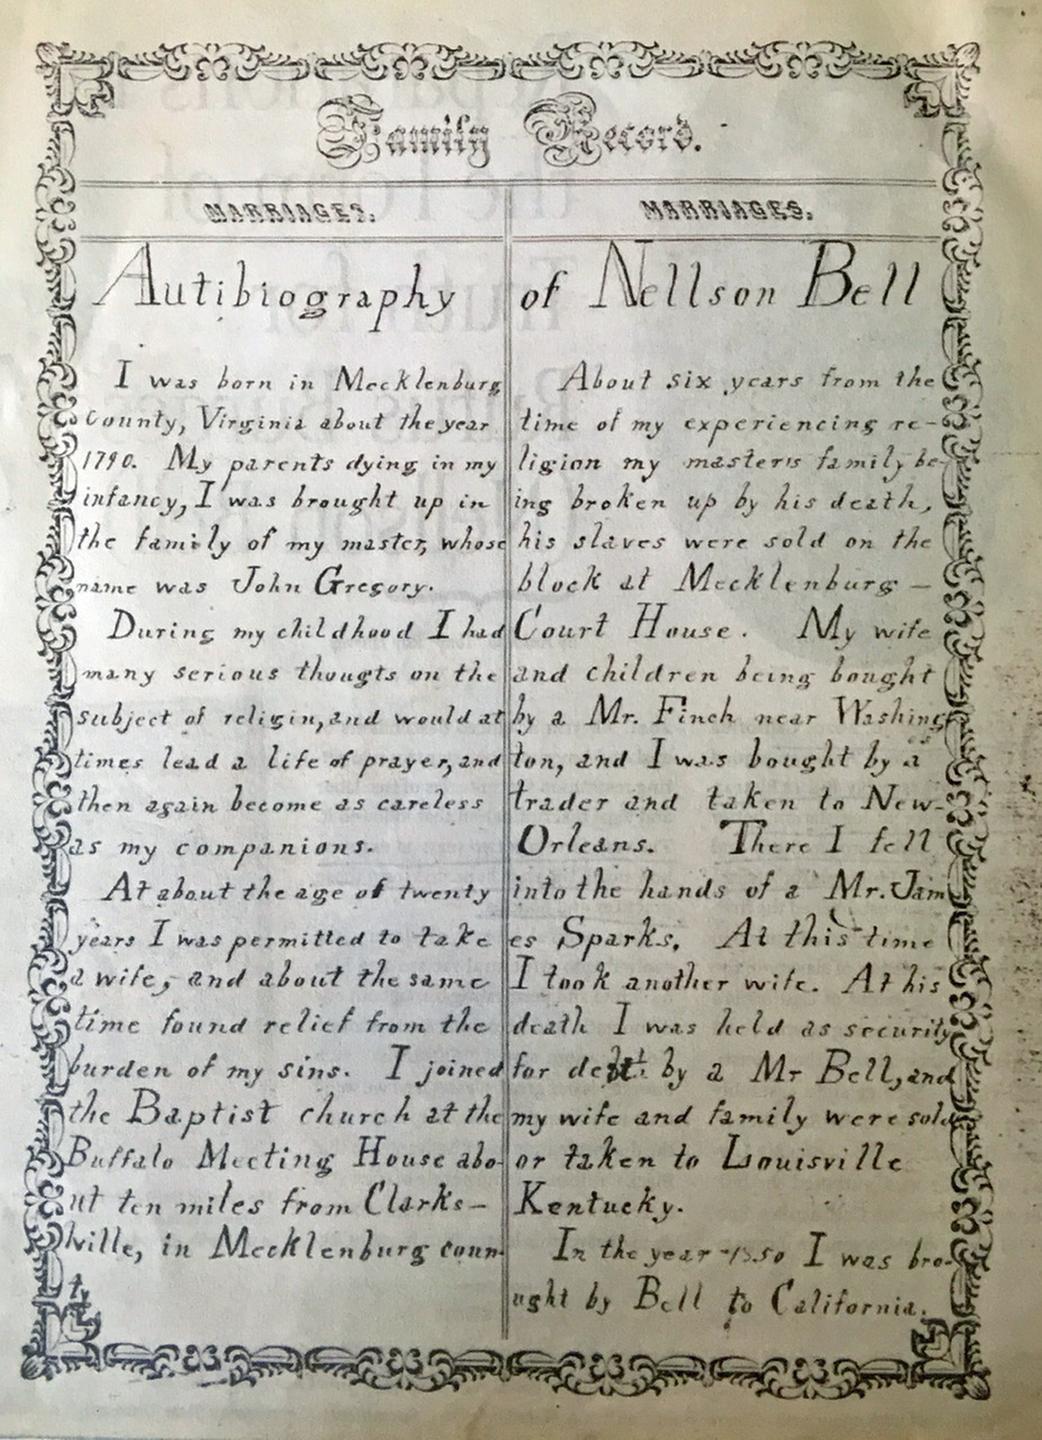 Family Record.
MARRIAGES.
MARRIAGES.
Autibiography of Nellson Bell
I was born in Mecklenburg
County, Virginia about the year
1790. My parents dying in my
infancy, I was brought up in
the family of my master, whose
name was John Gregory.
During my childhood I had
many serious thougts on the
subject of religin, and would at
times lead a life of prayer, and
then again become as careless
as my companions.
At about the age of twenty
years I was permitted to take
a wife, and about the same
time found relief from the
burden of my sins. I joined
the Baptist church at the
Buffalo Meeting House abo-
ut ten miles from Clarks-
ville, in Mecklenburg coun-
ty
About six years from the
time of my experiencing re-
ligion my masters family be-
ing broken up by his death,
his slaves were sold on the
block at Mecklenburg -
Court House. My wife
and children being bought
by a Mr. Finch near Washing
ton, and I was bought by a
trader and taken to New-
Orleans. There I fell
into the hands of a Mr. Jam
es Sparks. At this time
I took another wife. At his
death I was held as security
for debt by a Mr Bell, and
my wife and family were sold
or taken to Louisville
Kentucky.
In the year 1850 I was bro-
ught by Bell to California.